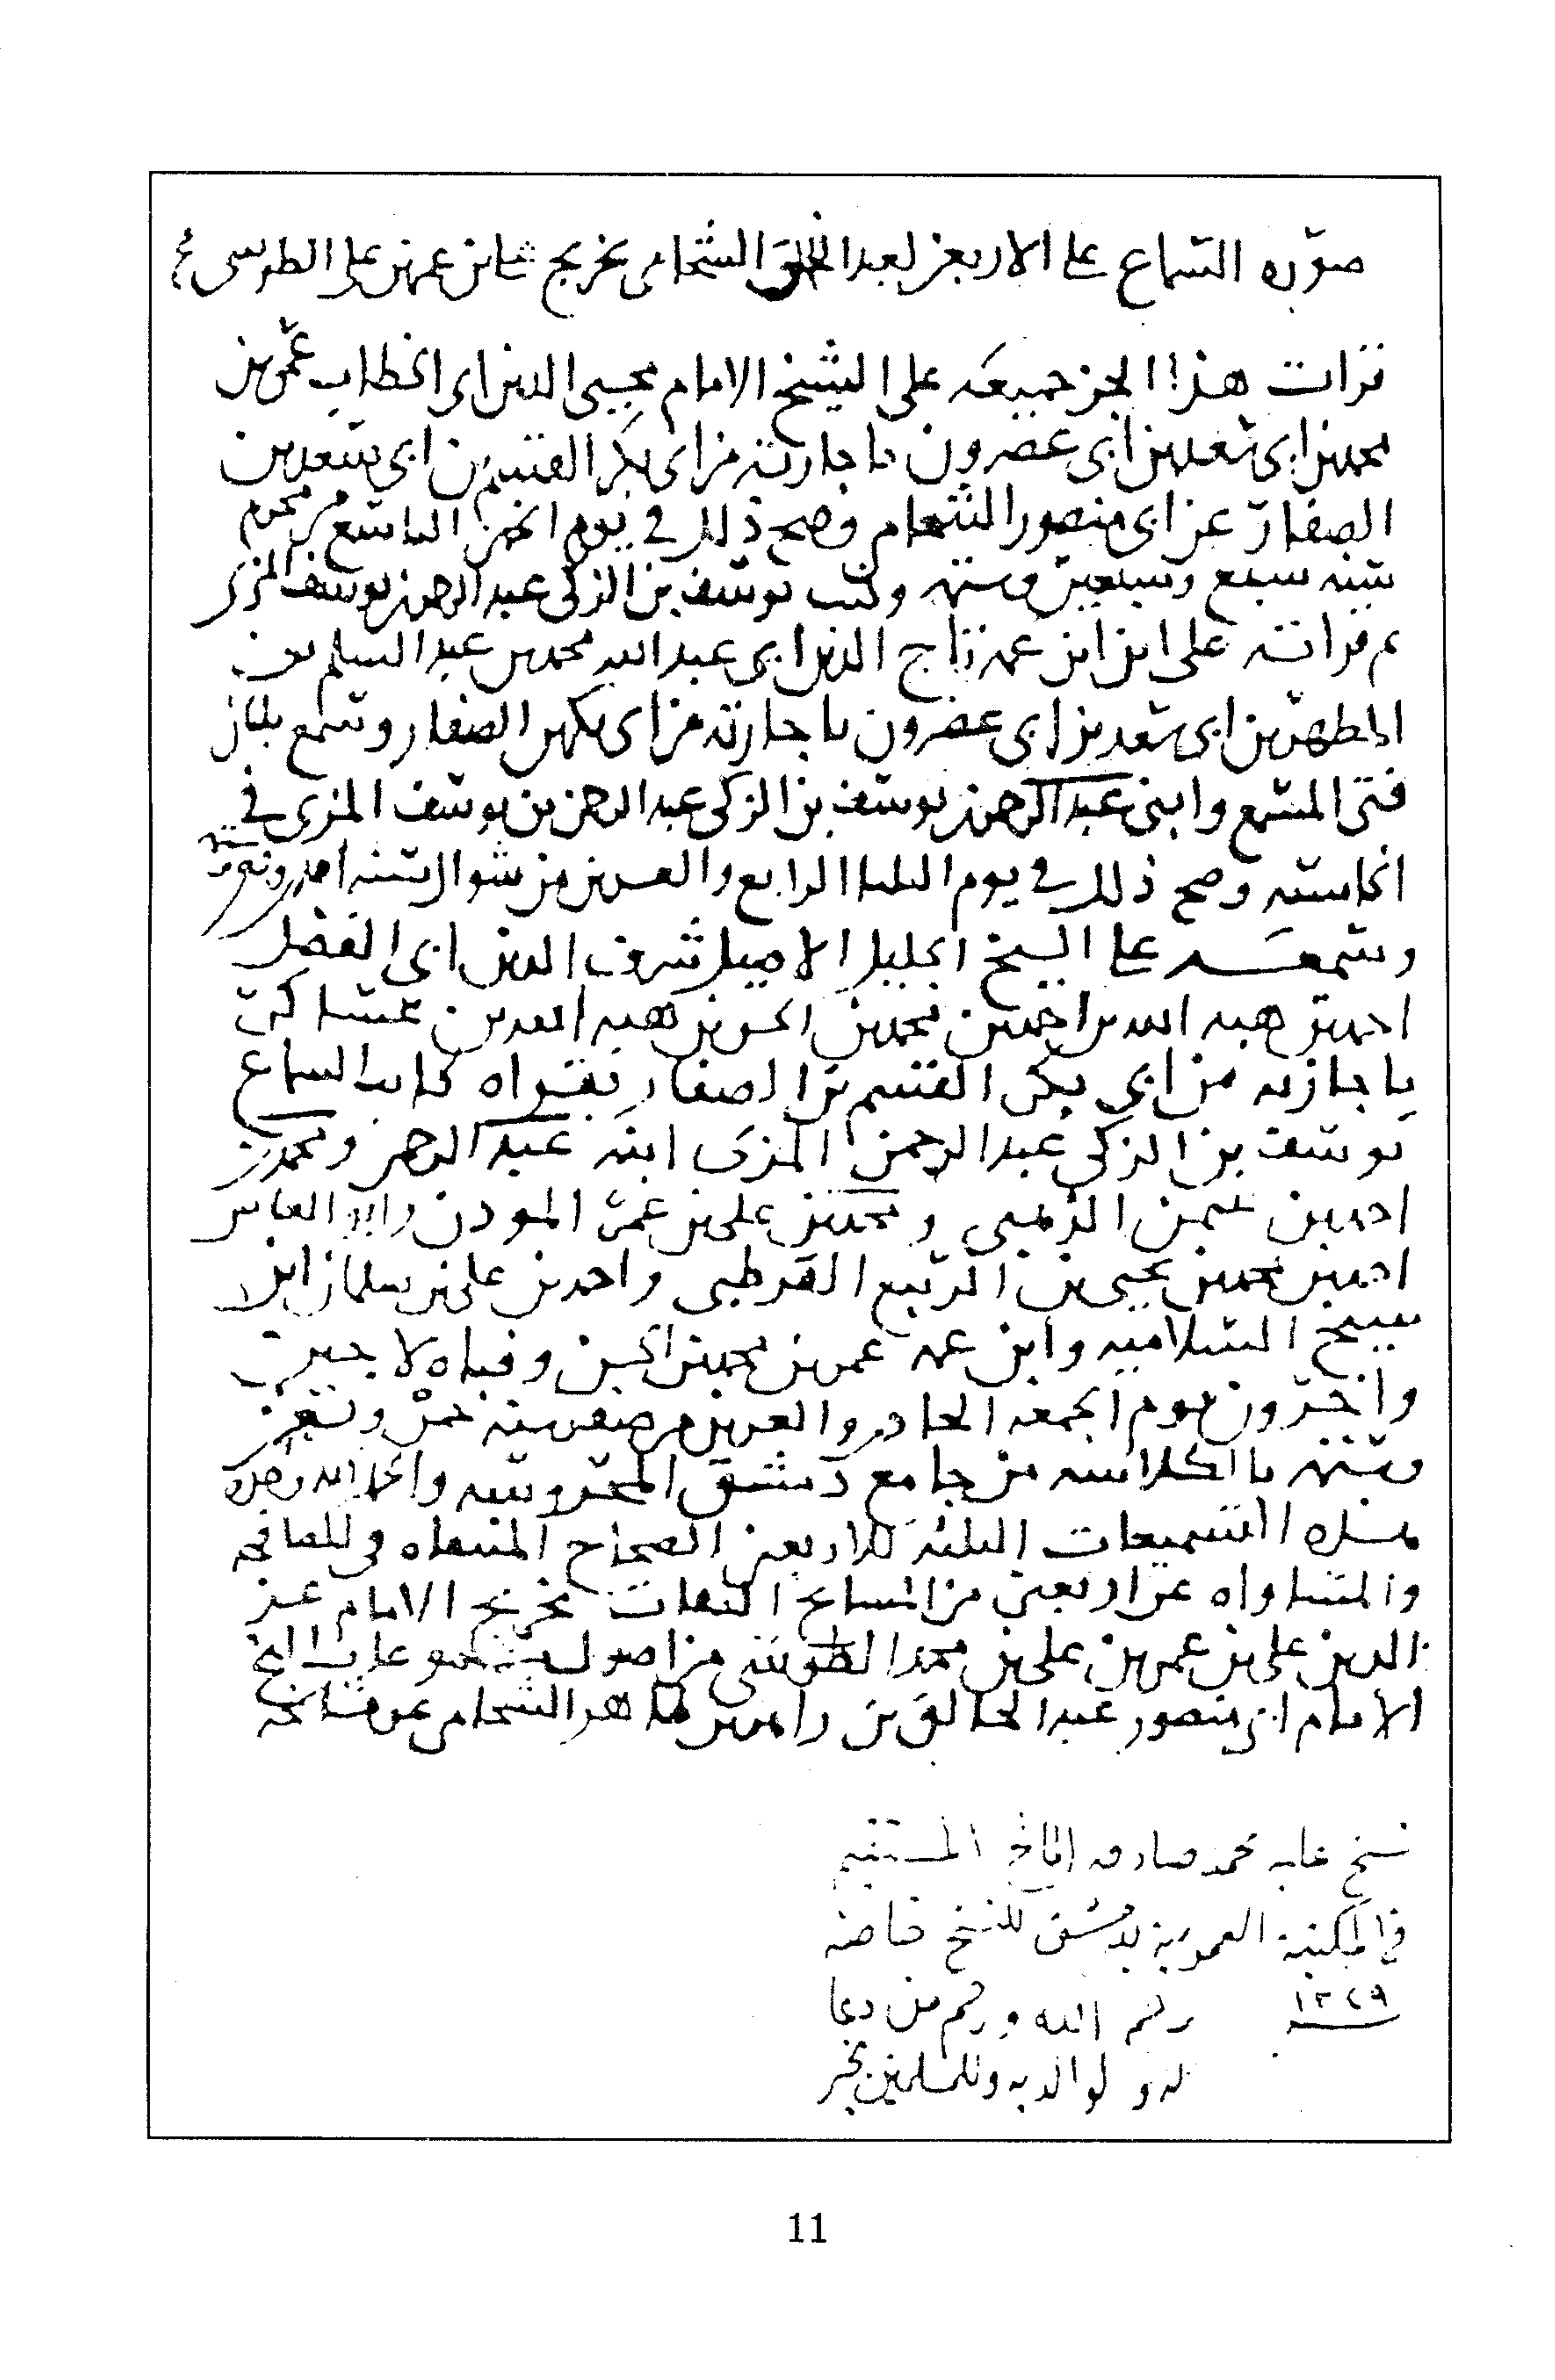 صورة السماع على الاربعين لعبد الخالق الشحامى تخريج على بن عمر بن على الطوسى
قرات هذا الجز جميعه على الشيخ الامام محيى الدين ابى الخطاب عمر بن
محمد بن ابى سعد بن ابى عصرون باجازته من ابى بكر القسم بن ابى سعد بن
الصفار عن ابى منصور الشحامى وصح ذلك في يوم الخميس التاسع من محرم
سنه سبع وسبعين وستمه وكتب يوسف بن الزكى عبد الرحمن بن يوسف المزى
ثم قراته على ابن ابن عمه تاج الدين ابى عبد الله محمد بن عبد السلم بن
المطهر بن ابى سعد بن ابى عصرون باجازته من ابى بكر بن الصفار وسمع بلبان
فتى المسمع وابنى عبد الرحمن بن يوسف بن الزكى عبد الرحمن بن يوسف المزى في
الخامسه وصح ذلك في يوم الثلثا الرابع والعشرين من شوال سنه احد وتسعين وستمه
وسمعه على الشيخ الجليل الاصيل شرف الدين ابى الفضل
احمد بن هبه الله بن احمد بن محمد بن الحسن بن هبه الله بن عساكر
باجازته من ابي بكر القسم بن الصفار بقراه كاتب السماع
يوسف بن الزكى عبد الرحمن المزى ابنه عبد الرحمن ومحمد بن
احمد بن عثمن الذهبى ومحمد بن على بن عمر الموذن وابو العباس
احمد بن محمد بن يحيى بن الربيع القرطبى واحمد بن على بن سلمان ابن
شيخ السلاميه وابن عمه عمر بن محمد بن الحسن وفتاه لاجين
واخرون يوم الجمعه الحادي والعشرين من صفر سنه خمس وتسعين
وستمه بالكلاسه من جامع دمشق المحروسه والحمد لله وحده
هذه التسميعات الثلثه للاربعين الصحاح المنتقاه في المصافحه
والمساواه عن اربعين من المشايخ الثقات تخريج الامام عز
الدين على بن عمر بن على بن محمد الطوسى من اصول مسموعات الشيخ
الامام ابى منصور عبد الخالق بن زاهر بن طاهر الشحامى عن مشايخه
نسخ عليه محمد صادق المستقيم
في المكتبة العمومية بدمشق للنسخ خاصة
سنة ١٣٤٩
رحم الله ورحم من دعا
له ولوالديه وللمسلمين بخير
11